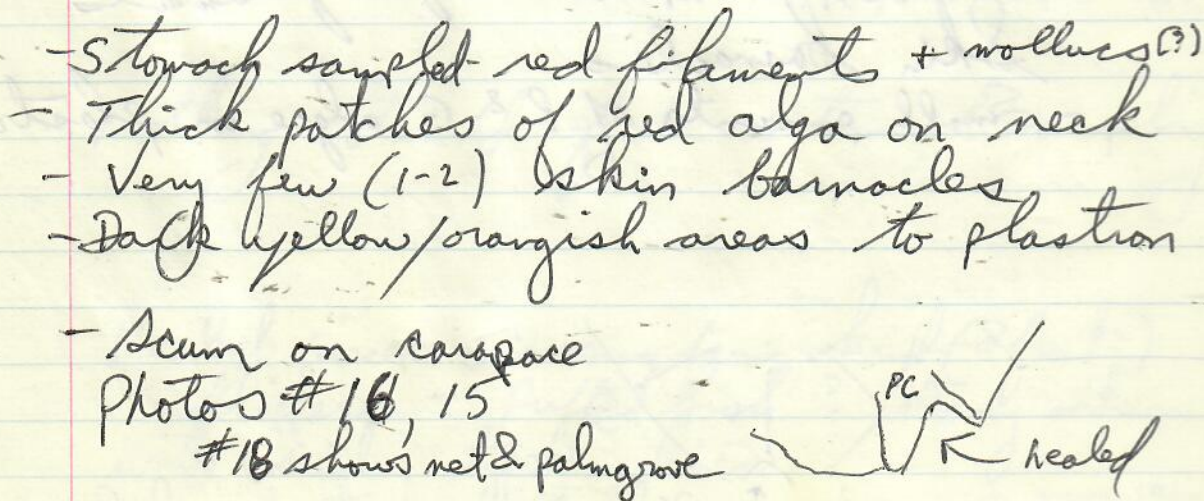 - Stomach sampled - red filaments + molluscs (?)
- Thick patches of red alga on neck
- Very few (1-2) skin barnacles
- Dark yellow/orangish areas to plastron
- Scum on carapace
Photos #16, 15
#18 shows net & palmgrove
PC
healed